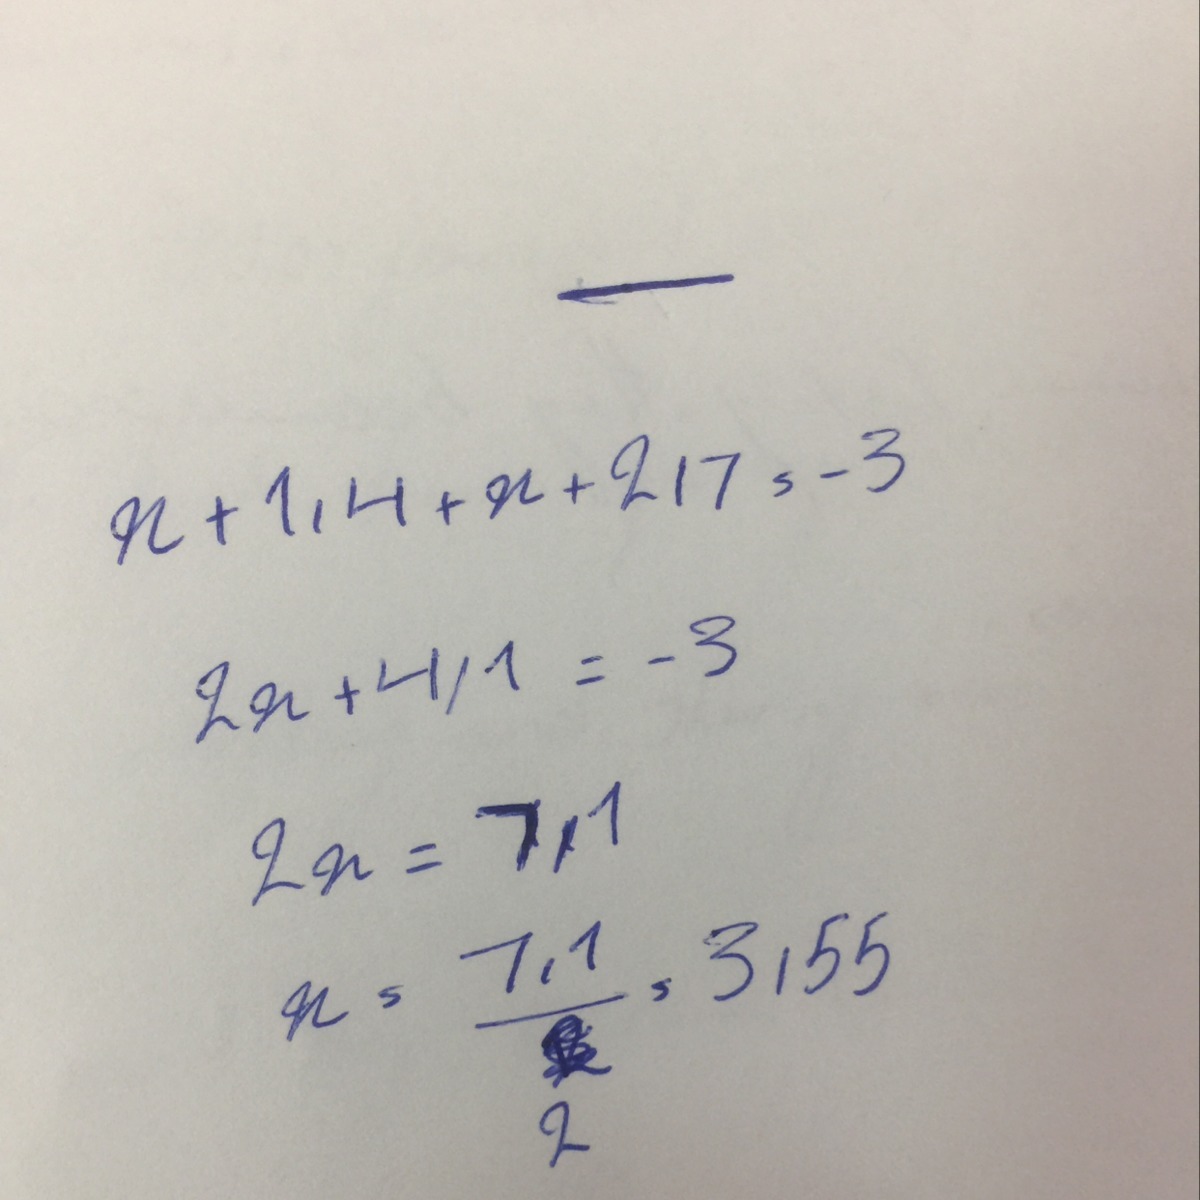 x + 1,4 + x + 2,7 = -3
2x + 4,1 = -3
2x = 7,1
x = 7,1/2 = 3,55